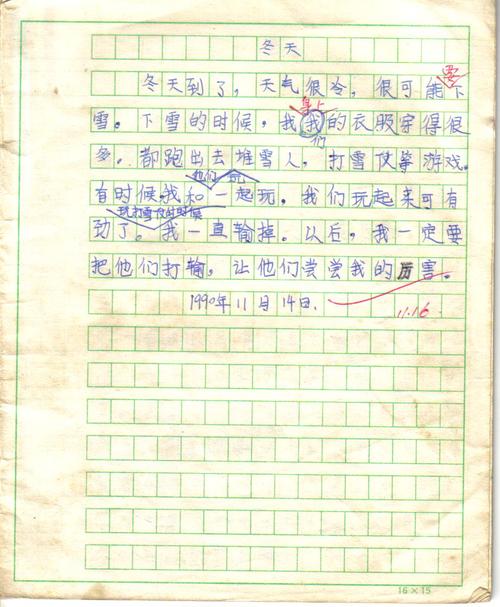 冬天
冬天到了，天气很冷，很可能要下
雪。下雪的时候，我身上的衣服穿得很
多。我们都跑出去堆雪人，打雪仗等游戏。
有时候我和他们一起玩，我们玩起来可有
劲了。玩打雪仗的时候，我一直输掉。以后，我一定要
把他们打输，让他们尝尝我的厉害。
1990年11月14日.
11.16
16×15